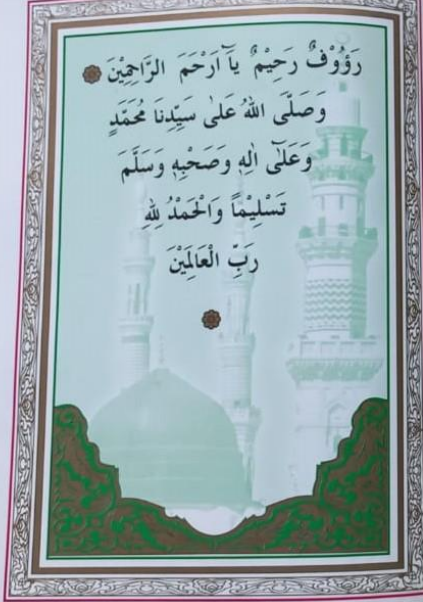 رَؤُوْفٌ رَحِيْمٌ يَآ اَرْحَمَ الرَّاحِمِيْنَ
وَصَلَّى اللهُ عَلٰى سَيِّدِنَا مُحَمَّدٍ
وَعَلٰٓى اٰلِهٖ وَصَحْبِهٖ وَسَلَّمَ
تَسْلِيْمًا وَالْحَمْدُ لِلهِ
رَبِّ الْعَالَمِيْنَ